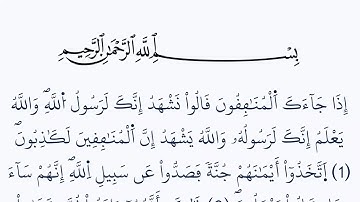 بِسْمِ اللَّهِ الرَّحْمَٰنِ الرَّحِيمِ
إِذَا جَآءَكَ ٱلْمُنَٰفِقُونَ قَالُوا۟ نَشْهَدُ إِنَّكَ لَرَسُولُ ٱللَّهِ ۗ وَٱللَّهُ
يَعْلَمُ إِنَّكَ لَرَسُولُهُۥ وَٱللَّهُ يَشْهَدُ إِنَّ ٱلْمُنَٰفِقِينَ لَكَٰذِبُونَ
(1) ٱتَّخَذُوٓا۟ أَيْمَٰنَهُمْ جُنَّةً فَصَدُّوا۟ عَن سَبِيلِ ٱللَّهِ ۚ إِنَّهُمْ سَآءَ